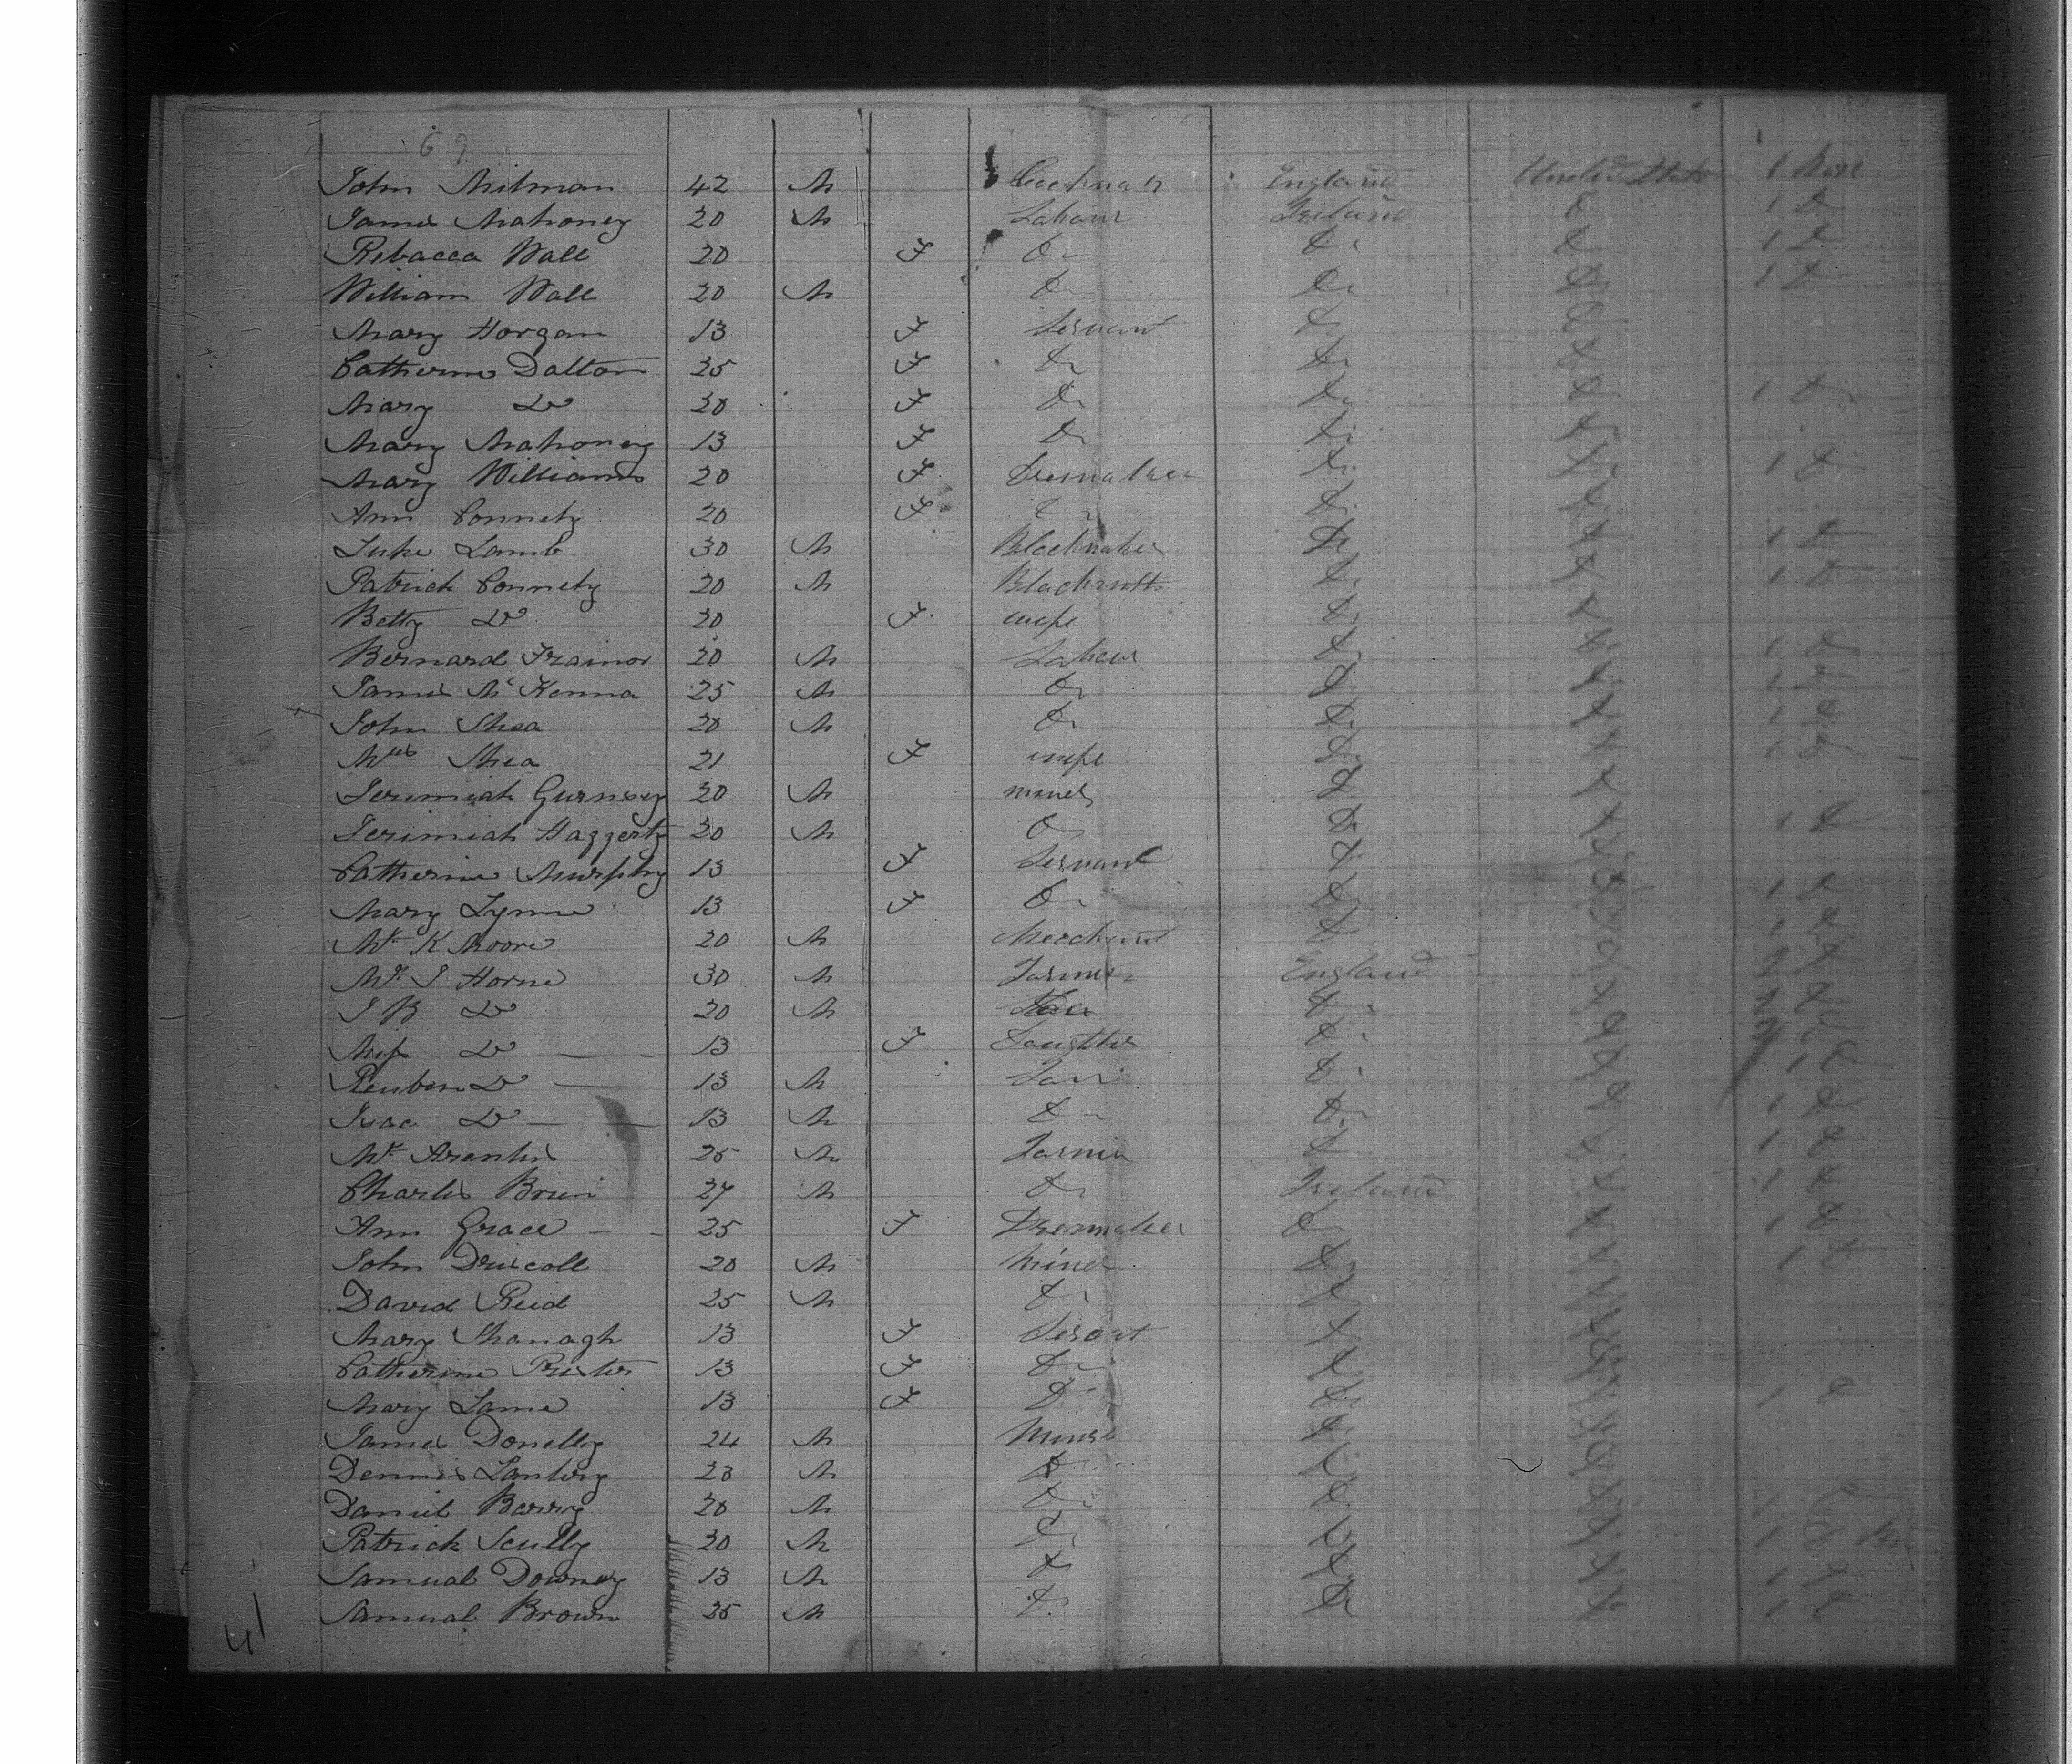 69
John Milman 42 M Coachman England United States 1 Box
James Mahoney 20 M Labour Ireland Do 1 Do
Rebacca Wall 20 F Do Do Do 1 Do
William Wall 20 M Do Do Do 1 Do
Mary Horgan 13 F Servant Do Do
Catherine Dalton 25 F Do Do Do
Mary Do 20 F Do Do Do 1 Do
Mary Mahoney 13 F Do Do Do
Mary Williams 20 F Dressmaker Do Do 1 Do
Ann Connety 20 F Do Do Do
Luke Lamb 30 M Blockmaker Do Do 1 Do
Patrick Connety 20 M Blacksmith Do Do 1 Do
Betty Do 20 F wife Do Do
Bernard Trainor 20 M Labour Do Do 1 Do
James McKenna 25 M Do Do Do 1 Do
John Shea 20 M Do Do Do 1 Do
Mrs Shea 21 F wife Do Do 1 Do
Jerimiah Gurnsey 20 M miner Do Do
Jerimiah Haggerty 20 M Do Do Do 1 Do
Catherine Murphy 13 F Servant Do Do
Mary Lynne 13 F Do Do Do 1 Do
Mr K Moore 20 M Merchant Do Do 1 Do
Mr J Horne 30 M Farmer England Do Do
J B Do 20 M Do Do Do
Miss Do 13 F Daughter Do Do Do
Reuben Do 13 M Son Do Do 1 Do
Isac Do 13 M Do Do Do 1 Do
Mr 25 M Farmer Do Do 1 Do
Charles 27 M Do Ireland Do 1 Do
Ann Grace 25 F Dressmaker Do Do 1 Do
John Driscoll 20 M Miner Do Do 1 Do
David Reid 25 M Do Do Do
Mary Shanagh 13 F Servant Do Do
Catherine 13 F Do Do Do
Mary Lame 13 F Do Do Do 1 Do
James Donelly 24 M Miner Do Do
Dennis 23 M Do Do Do
Daniel Barry 20 M Do Do Do 1 Do
Patrick Scully 20 M Do Do Do 1 Do
Samual Downey 13 M Do Do Do 1 Do
Samual Brown 25 M Do Do Do 1 Do
41